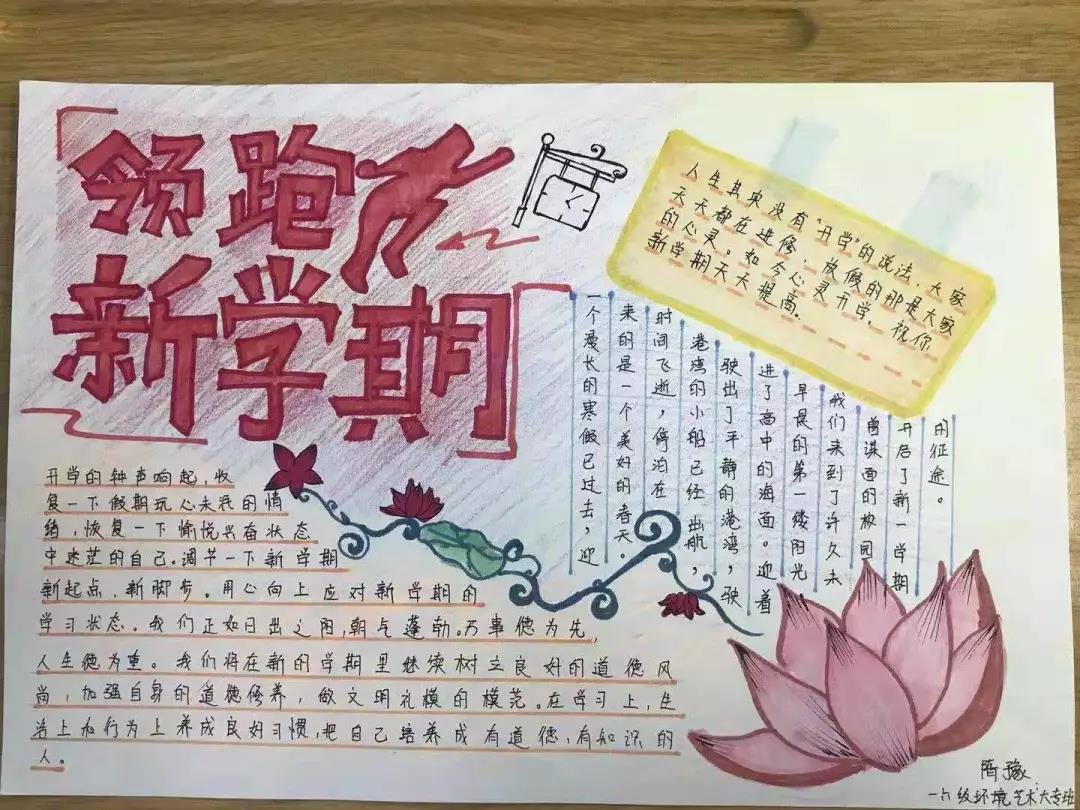 领跑
新学期
人生其实没有“开学”的说法，大家
天天都在进修，放假的那是大家
的心灵。如今心灵开学，祝你
新学期天天提高。
一个漫长的寒假已过去，迎
来的是一个美好的春天。
时间飞逝，停泊在
港湾的小船已经出航，
驶出了平静的港湾，驶
进了高中的海面。迎着
早晨的第一缕阳光，
我们来到了许久未
曾谋面的校园
开启了新一学期
的征途。
开学的钟声响起，收
复一下假期玩心未泯的情
绪，恢复一下愉悦兴奋状态
中迷茫的自己。调节一下新学期
新起点、新脚步。用心向上应对新学期的
学习状态。我们正如日出之阳，朝气蓬勃。万事德为先，
人生德为重。我们将在新的学期里继续树立良好的道德风
尚，加强自身的道德修养，做文明礼模的模范。在学习上，生
活上和行为上养成良好习惯，把自己培养成有道德，有知识的
人。
豫
一六级环境艺术大专班